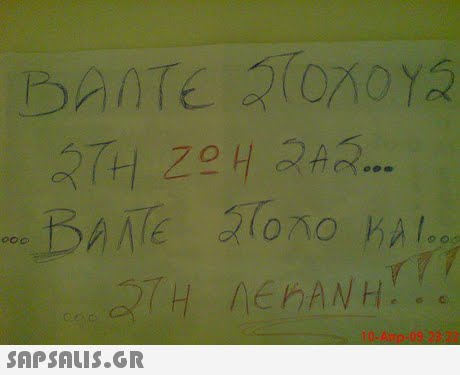 ΒΑΛΤΕ ΣΤΟΧΟΥΣ
ΣΤΗ ΖΩΗ ΣΑΣ...
...ΒΑΛΤΕ ΣΤΟΧΟ ΚΑΙ...
...ΣΤΗ ΛΕΚΑΝΗ!!!
10-Απρ-09 23:22
SAPSALIS.GR